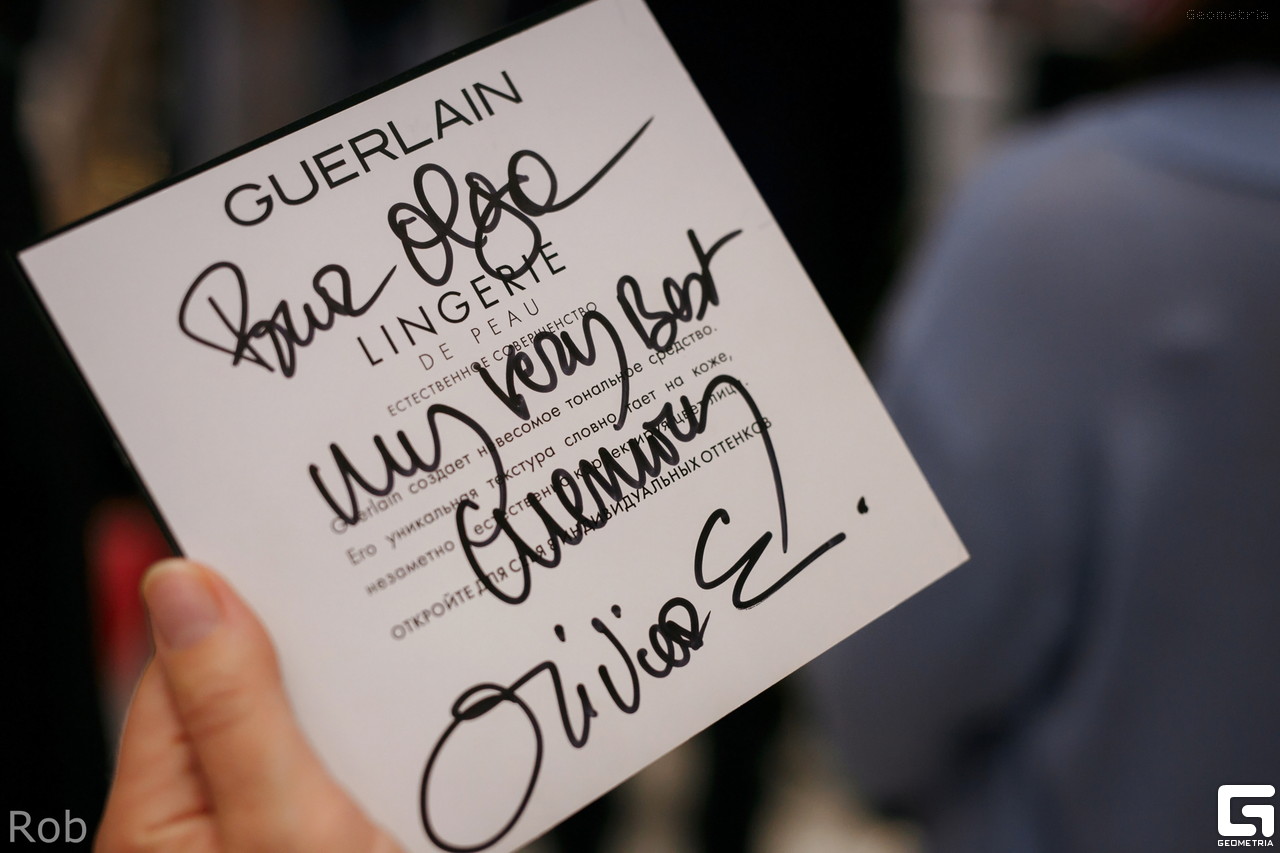 Geometria
GUERLAIN
Pour Olga
LINGERIE
DE PEAU
ЕСТЕСТВЕННОЕ СОВЕРШЕНСТВО
my very Best
Guerlain создает невесомое тональное средство.
Его уникальная текстура словно тает на коже,
незаметно и естественно корректируя цвет лица.
ОТКРОЙТЕ ДЛЯ СЕБЯ 8 ИНДИВИДУАЛЬНЫХ ОТТЕНКОВ
Olivier E.
Rob
GEOMETRIA